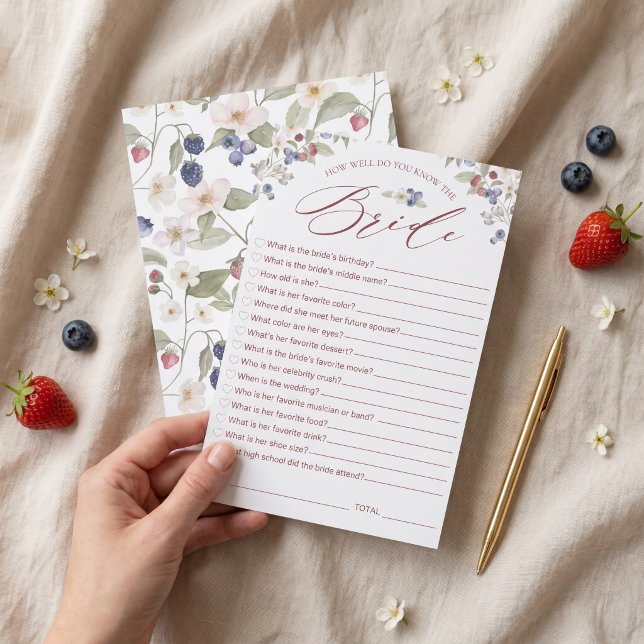 HOW WELL DO YOU KNOW THE
Bride
What is the bride's birthday?
What is the bride's middle name?
How old is she?
What is her favorite color?
Where did she meet her future spouse?
What color are her eyes?
What's her favorite dessert?
What is the bride's favorite movie?
Who is her celebrity crush?
When is the wedding?
Who is her favorite musician or band?
What is her favorite food?
What is her favorite drink?
What is her shoe size?
at high school did the bride attend?
TOTAL